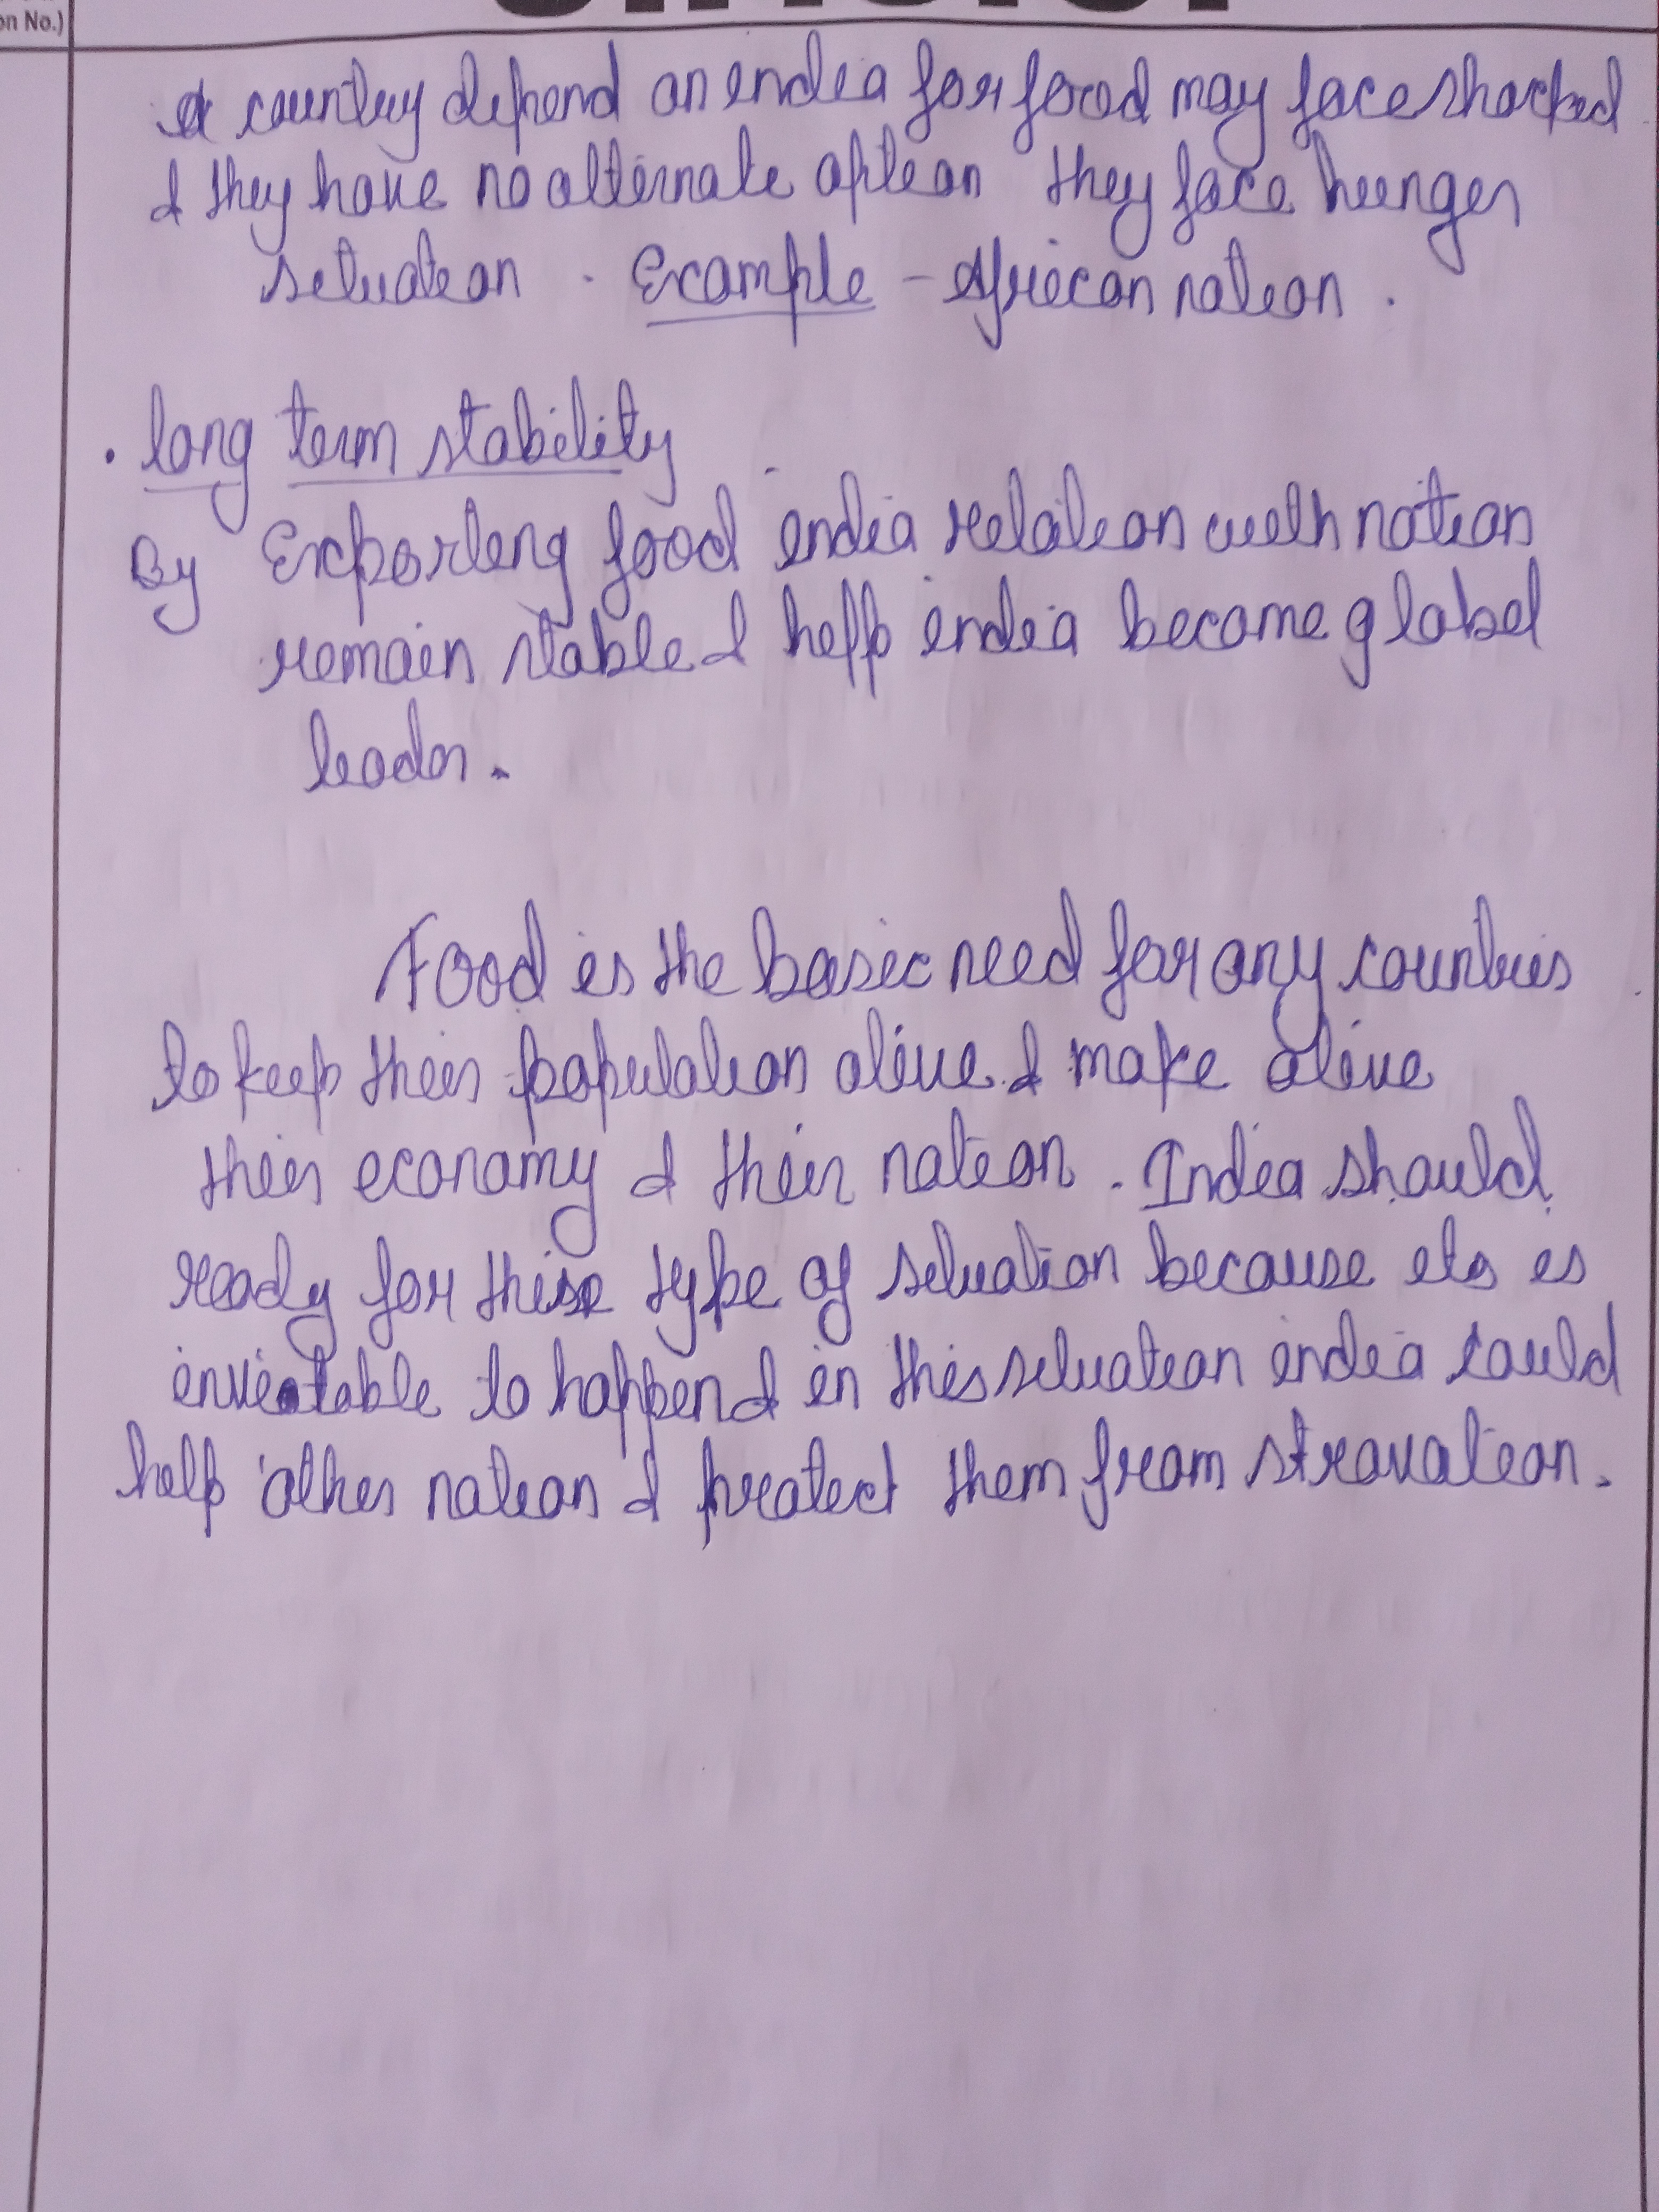 on No.)
A country depend on india for food may face shocked
& they have no alternate option they face hunger
situation. Example - African nation.
. long term stability
By Exporting food india relation with nation
remain stable & help india become global
leader.
Food is the basic need for any countries
to keep their population alive & make alive
their economy & their nation. India should
ready for these type of situation because its is
inveatable to happen & in this situation india could
help other nation & protect them from stravation.